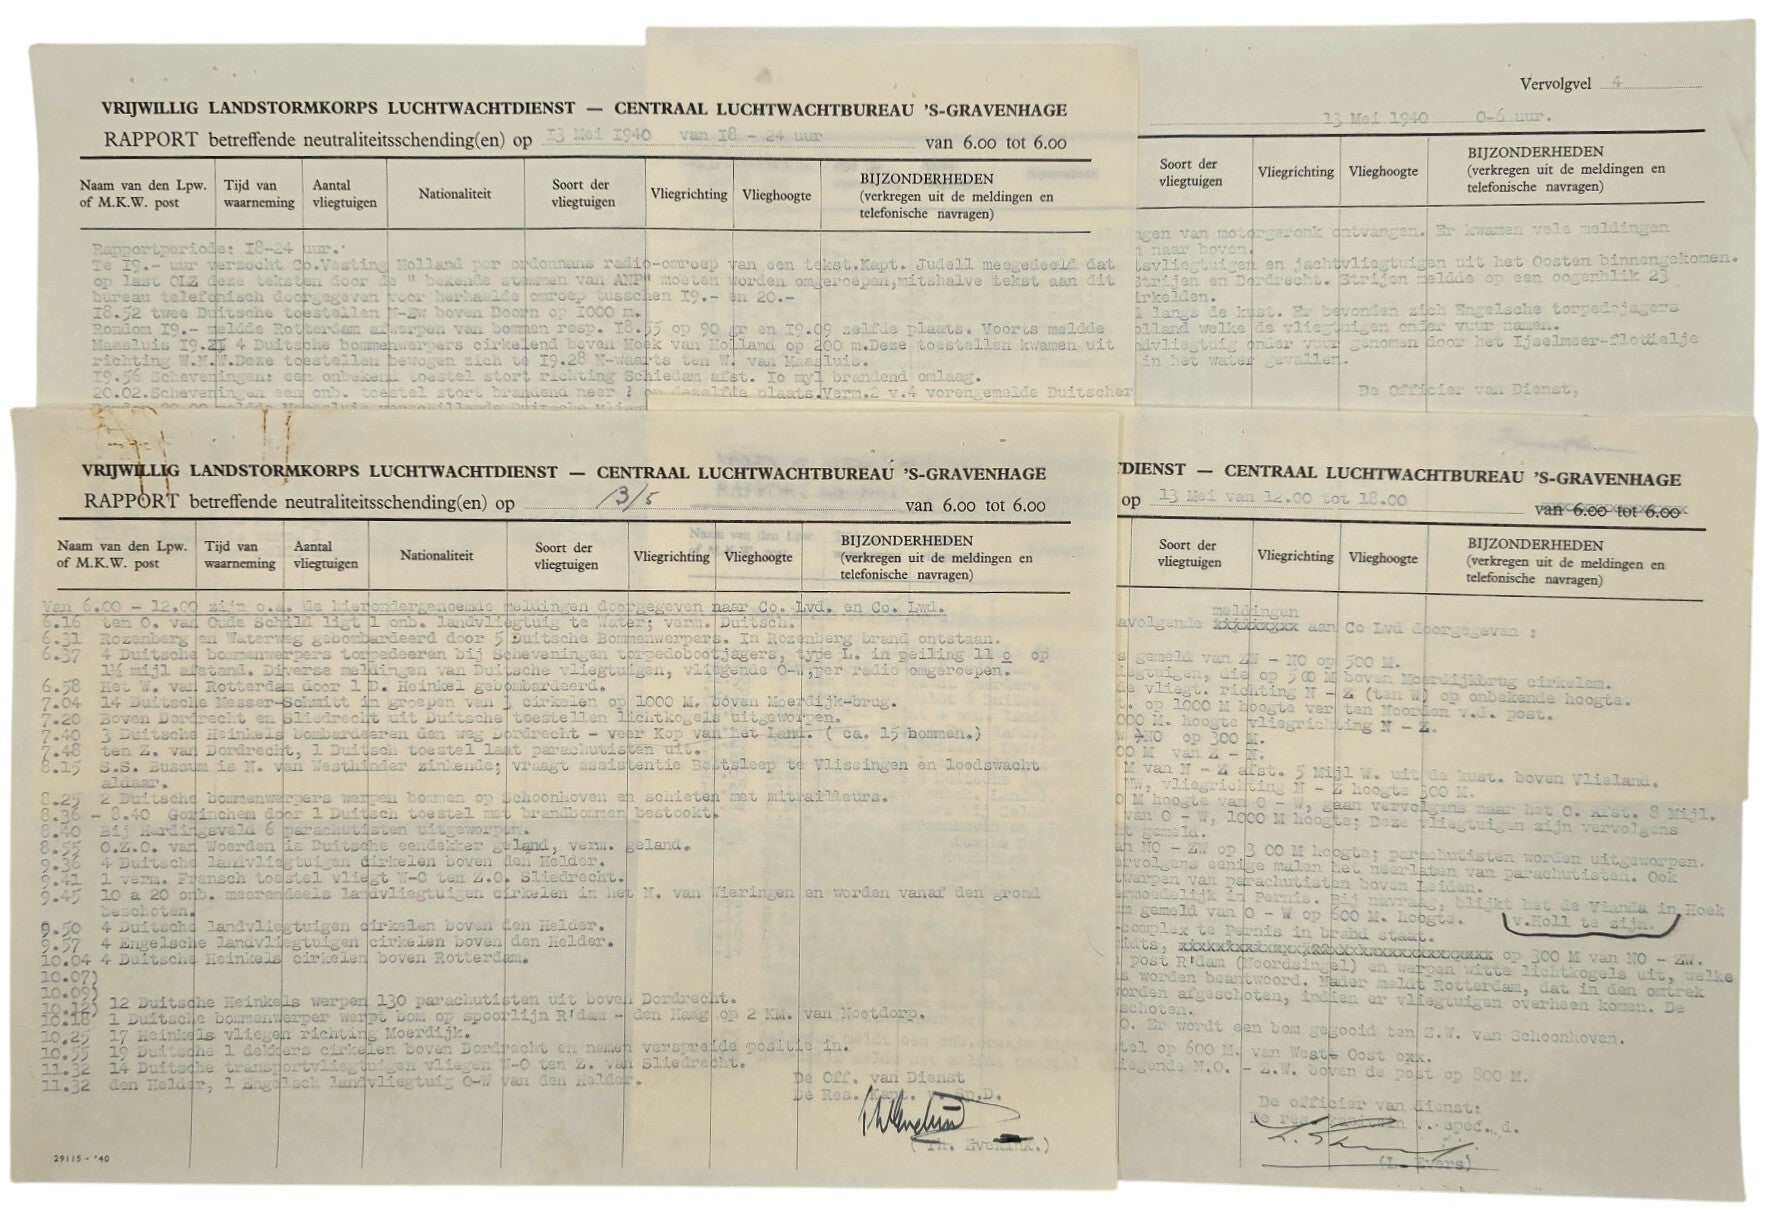 VRIJWILLIG LANDSTORMKORPS LUCHTWACHTDIENST — CENTRAAL LUCHTWACHTBUREAU 'S-GRAVENHAGE
RAPPORT betreffende neutraliteitsschending(en) op 13 Mei 1940 van 18 - 24 uur van 6.00 tot 6.00
Naam van den Lpw. of M.K.W. post
Tijd van waarneming
Aantal vliegtuigen
Nationaliteit
Soort der vliegtuigen
Vliegrichting
Vlieghoogte
BIJZONDERHEDEN
(verkregen uit de meldingen en telefonische navragen)
Rapportperiode: 18-24 uur.
Te 19.- uur verzocht Co.Vesting Holland per ordonnans radio-omroep van een tekst.Kapt. Judell meegedeeld dat
op last OLZ deze teksten door de " bekende stemmen van ANP" moeten worden omgeroepen,mitshalve tekst aan dit
bureau telefonisch doorgegeven voor herhaalde omroep tusschen 19.- en 20.-
18.52 twee Duitsche toestellen N-Zw boven Doorn op 1000 m.
Rondom 19.- meldde Rotterdam afwerpen van bommen resp. 18.55 op 90 gr en 19.09 zelfde plaats. Voorts meldde
Maasluis 19.21 4 Duitsche bommenwerpers cirkelend boven Hoek van Holland op 200 m.Deze toestellen kwamen uit
richting W.N.W.Deze toestellen bewogen zich te 19.28 N-waarts ten W. van Maasluis.
19.56 Scheveningen: een onbekend toestel stort richting Schiedam afst. 10 myl brandend omlaag.
20.02.Scheveningen een onb. toestel stort brandend neer op dezalfde plaats.Verm.2 v.4 vorengemelde Duitscher
Vervolgvel 4
13 Mei 1940 0-6 uur.
Soort der vliegtuigen
Vliegrichting
Vlieghoogte
BIJZONDERHEDEN
(verkregen uit de meldingen en telefonische navragen)
gen van motorgeronk ontvangen. Er kwamen vele meldingen
naar boven.
tsvliegtuigen en jachtvliegtuigen uit het Oosten binnengekomen.
Strijen en Dordrecht. Strijen meldde op een oogenblik 23
irkelden.
l langs de kust. Er bevonden zich Engelsche torpedojagers
olland welke de vliegtuigen onder vuur namen.
ndvliegtuig onder vuur genomen door het Ijselmeer-flottielje
in het water gevallen.
De Officier van Dienst,
VRIJWILLIG LANDSTORMKORPS LUCHTWACHTDIENST — CENTRAAL LUCHTWACHTBUREAU 'S-GRAVENHAGE
RAPPORT betreffende neutraliteitsschending(en) op 13/5 van 6.00 tot 6.00
Naam van den Lpw. of M.K.W. post
Tijd van waarneming
Aantal vliegtuigen
Nationaliteit
Soort der vliegtuigen
Vliegrichting
Vlieghoogte
BIJZONDERHEDEN
(verkregen uit de meldingen en telefonische navragen)
Van 6.00 - 12.00 zijn o.a. de hierondergenoemde meldingen doorgegeven naar Co. Lvd. en Co. Lwd.
6.16 ten O. van Oude Schild ligt 1 onb. landvliegtuig te Water; verm. Duitsch.
6.31 Rozenberg en Waterweg gebombardeerd door 5 Duitsche Bommenwerpers. In Rozenberg brand ontstaan.
6.37 4 Duitsche bommenwerpers torpedeeren bij Scheveningen torpedobootjagers, type L. in peiling 11 o op
1½ mijl afstand. Diverse meldingen van Duitsche vliegtuigen, vliegende O-W,per radio omgeroepen.
6.58 Het W. van Rotterdam door 1 D. Heinkel gebombardeerd.
7.04 14 Duitsche Messer-Schmitt in groepen van 3 cirkelen op 1000 M. boven Moerdijk-brug.
7.20 Boven Dordrecht en Sliedrecht uit Duitsche toestellen lichtkogels uitgeworpen.
7.40 3 Duitsche Heinkels bombardeeren den weg Dordrecht - veer Kop van het Land. ( ca. 15 bommen.)
7.48 ten Z. van Dordrecht, 1 Duitsch toestel laat parachutisten uit.
8.15 S.S. Bussum is N. van Westhinder zinkende; vraagt assistentie Bootsleep te Vlissingen en loodswacht
aldaar.
8.25 2 Duitsche bommenwerpers werpen bommen op Schoonhoven en schieten met mitrailleurs.
8.36 - 8.40 Gorinchem door 1 Duitsch toestel met brandbommen bestookt.
8.40 Bij Hardingsveld 6 parachutisten uitgeworpen.
8.55 O.Z.O. van Woerden is Duitsche eendekker geland, verm. geland.
9.36 4 Duitsche landvliegtuigen cirkelen boven den Helder.
9.41 1 verm. Fransch toestel vliegt W-O ten Z.O. Sliedrecht.
9.45 10 a 20 onb. meerendeels landvliegtuigen cirkelen in het N. van Wieringen en worden vanaf den grond
beschoten.
9.50 4 Duitsche landvliegtuigen cirkelen boven den Helder.
9.57 4 Engelsche landvliegtuigen cirkelen boven den Helder.
10.04 4 Duitsche Heinkels cirkelen boven Rotterdam.
10.07)
10.09)
10.12) 12 Duitsche Heinkels werpen 130 parachutisten uit boven Dordrecht.
10.18 1 Duitsche bommenwerper werpt bom op spoorlijn R'dam - den Haag op 2 KM. van Nootdorp.
10.25 17 Heinkels vliegen richting Moerdijk.
10.55 19 Duitsche 1 dekkers cirkelen boven Dordrecht en nemen verspreide positie in.
11.32 14 Duitsche transportvliegtuigen vliegen W-O ten Z. van Sliedrecht.
11.32 den Helder, 1 Engelsch landvliegtuig O-W van den Helder.
De Off. van Dienst
De Res. Kapt. v. Sp.D.
29115 - '40
DIENST — CENTRAAL LUCHTWACHTBUREAU 'S-GRAVENHAGE
op 13 Mei van 12.00 tot 18.00 van 6.00 tot 6.00
Soort der vliegtuigen
Vliegrichting
Vlieghoogte
BIJZONDERHEDEN
(verkregen uit de meldingen en telefonische navragen)
meldingen
avolgende aan Co Lvd doorgegeven :
s gemeld van ZW - NO op 500 M.
iegtuigen, die op 500 M boven Moerdijkbrug cirkelen.
de vliegt. richting N - Z (ten W) op onbekende hoogte.
t. op 1000 M hoogte ver ten Noorden v.d. post.
000 M. hoogte vliegrichting N - Z.
W -NO op 300 M.
00 M van Z - N.
M van N - Z afst. 5 Mijl W. uit de kust. boven Vlieland.
W, vliegrichting N - Z hoogte 300 M.
0 M hoogte van O - W, gaan vervolgens naar het O. Afst. 8 Mijl.
van O - W, 1000 M hoogte; Deze vliegtuigen zijn vervolgens
t gemeld.
an NO - ZW op 3 00 M hoogte; parachutisten worden uitgeworpen.
ervolgens eenige malen het neerlaten van parachutisten. Ook
twerpen van parachutisten boven Leiden.
ermoedelijk in Pernis. Bij navraag, blijkt het de Vianda in Hoek
v.Holl te zijn.
m gemeld van O - W op 600 M. hoogte.
-complex te Pernis in brabd staat.
idts, op 300 M van NO - ZW.
post R'dam (Noordsingel) en werpen witte lichtkogels uit, welke
s worden beantwoord. Nader meldt Rotterdam, dat in den omtrek
orden afgeschoten, indien er vliegtuigen overheen komen. De
schoten.
O. Er wordt een bom gegooid ten Z.W. van Schoonhoven.
tel op 600 M. van West- Oost oxx.
iegende N.O. - Z.W. boven de post op 800 M.
De officier van dienst:
De res. kapitein v. spec. d.
(L. Evers)